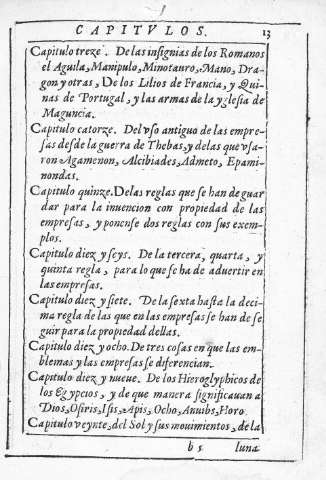 CAPITVLOS.
13
Capitulo treze. De las insignias de los Romanos
el Aguila, Manipulo, Minotauro, Mano, Dra-
gon y otras, De los Lilios de Francia, y Qui-
nas de Portugal, y las armas de la yglesia de
Maguncia.
Capitulo catorze. Del vso antiguo de las empre-
sas desde la guerra de Thebas, y de las que vsa-
ron Agamenon, Alcibiades, Admeto, Epami-
nondas.
Capitulo quinze. De las reglas que se han de guar
dar para la inuencion con propiedad de las
empresas, y ponense dos reglas con sus exem-
plos.
Capitulo diez y seys. De la tercera, quarta, y
quinta regla, para lo que se ha de aduertir en
las empresas.
Capitulo diez y siete. De la sexta hasta la deci-
ma regla de las que en las empresas se han de se
guir para la propiedad dellas.
Capitulo diez y ocho. De tres cosas en que las em-
blemas y las empresas se diferencian.
Capitulo diez y nueue. De los Hieroglyphicos de
los Egypcios, y de que manera significauan a
Dios, Osiris, Isis, Apis, Ocho, Anubis, Horo
Capitulo veynte, del Sol y sus mouimientos, de la
b 5 luna